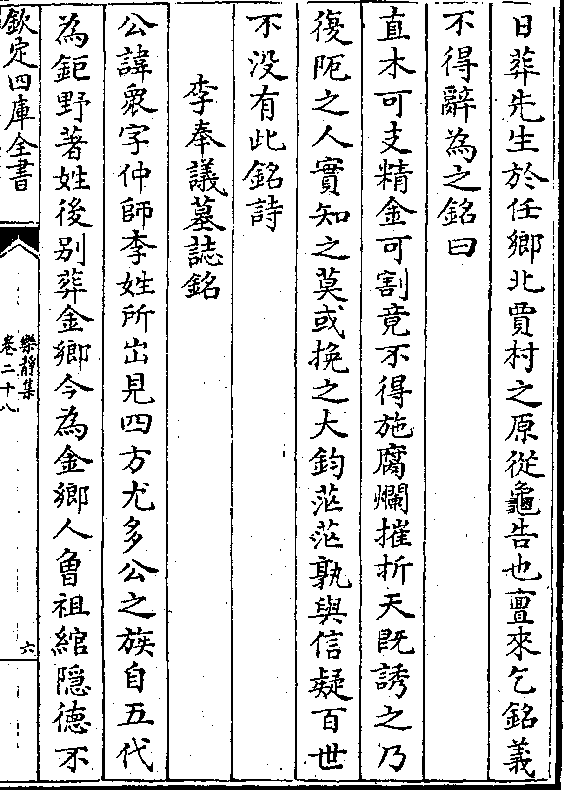 日葬先生於任鄉北賈村之原從龜告也亶來乞銘義
不得辭為之銘曰
直木可支精金可割竟不得施腐爛摧折天既誘之乃
復阨之人實知之莫或挽之大鈞茫茫孰與信疑百世
不没有此銘詩
李奉議墓誌銘
公諱衆字仲師李姓所出見四方尤多公之族自五代
為鉅野著姓後别葬金鄉今為金鄉人曾祖綰隠德不
欽定四庫全書
樂靜集
卷二十八
六